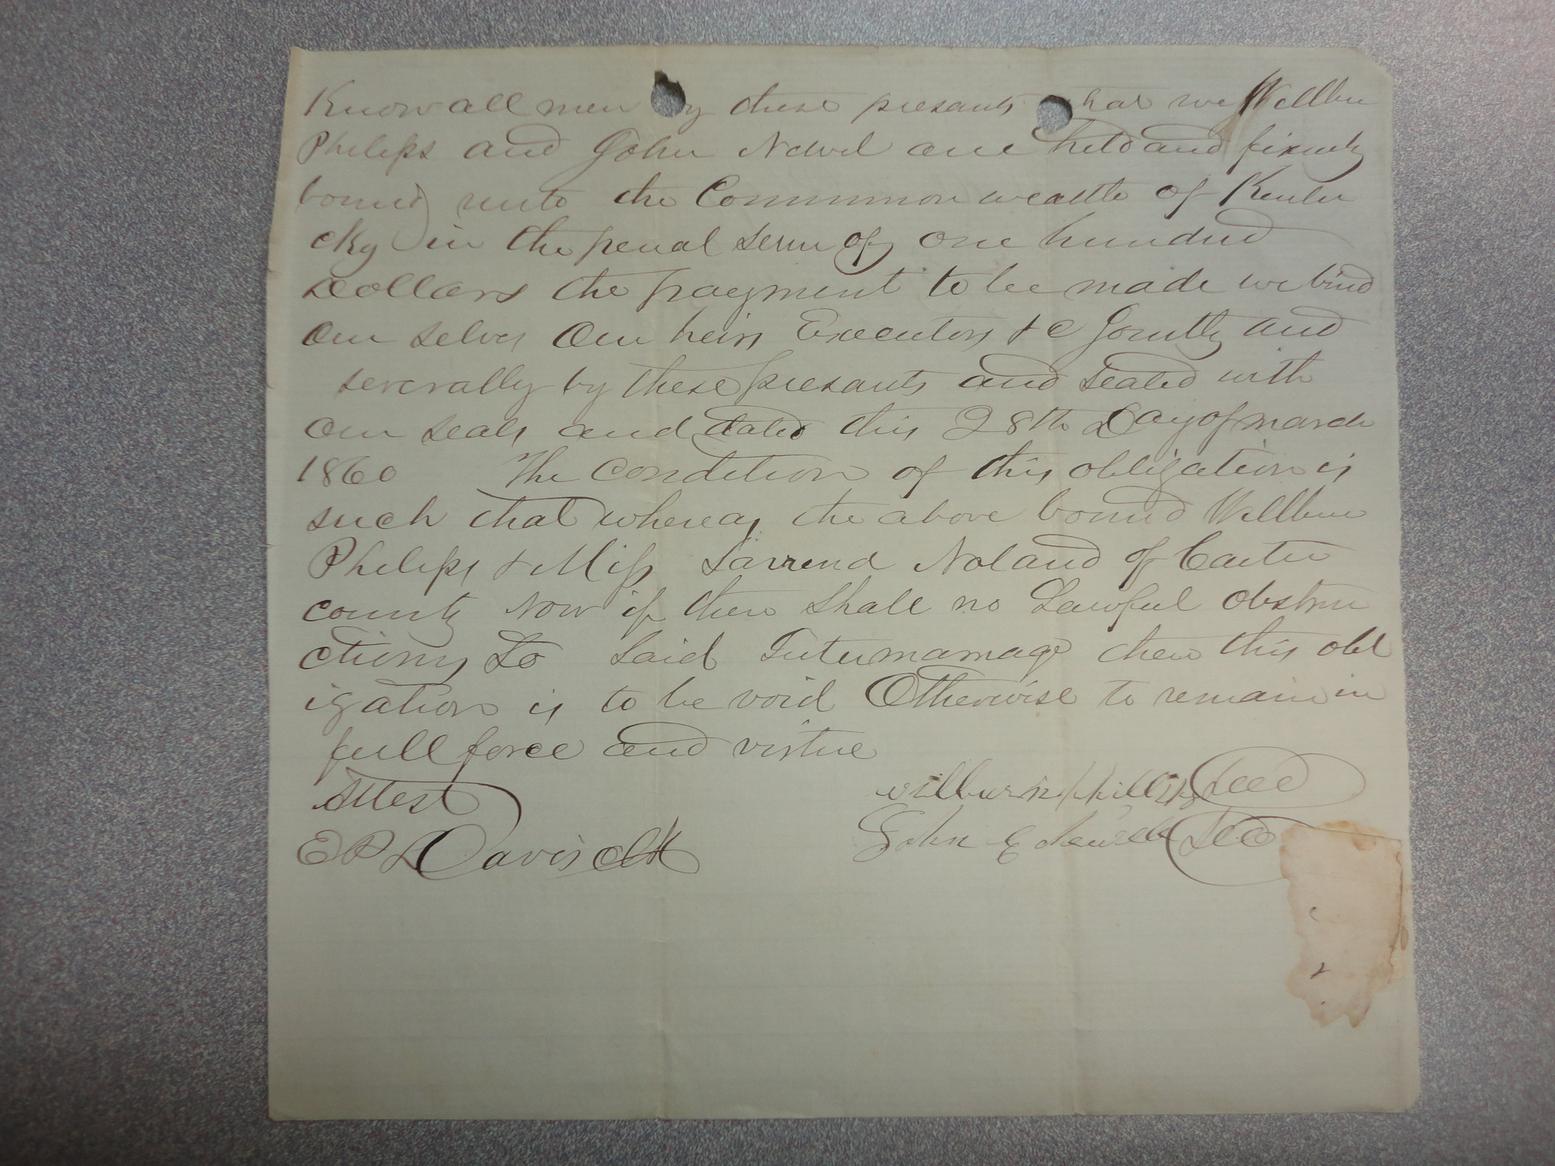 Know all men by these presants that we Willbur
Philips and John Nevel are held and firmely
bound unto the Commonwealth of Kentu
cky in the penal sum of one hundred
Dollars the payment to be made we bind
our selves our heirs Executors & c Jointly and
severally by these presants and sealed with
our seals and dated this 28th Day of march
1860 The Condition of this obligation is
such that whereas the above bound Willbur
Philips & Miss Noland of Carter
county Now if there shall no Lawful obstru
ctions to said Intermarriage then this obl
igation is to be void Otherwise to remain in
full force and virtue
Attest
wilburn Phillips Seal
E P Davis Clk
John E Seal